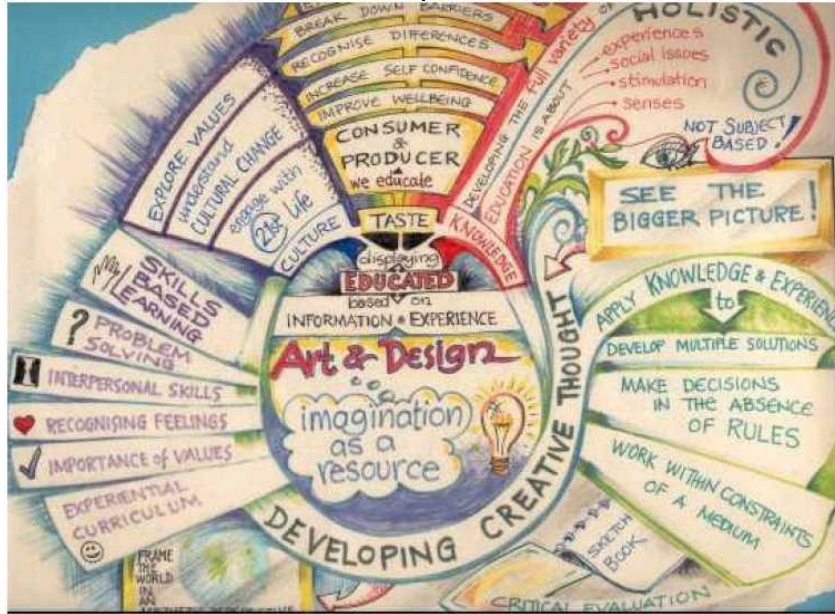 BREAK DOWN BARRIERS
RECOGNISE DIFFERENCES
INCREASE SELF CONFIDENCE
IMPROVE WELLBEING
CONSUMER
& PRODUCER
we educate
TASTE
EXPLORE VALUES
understand
CULTURAL CHANGE
engage with
21st Life
CULTURE
KNOWLEDGE
DEVELOPING THE full variety of
EDUCATION IS ABOUT
HOLISTIC
experiences
social issues
stimulation
senses
NOT SUBJECT
BASED!
SEE THE
BIGGER PICTURE!
displaying
EDUCATED
based on
INFORMATION & EXPERIENCE
Art & Design
imagination
as a
resource
DEVELOPING CREATIVE THOUGHT
SKILLS
BASED
LEARNING
? PROBLEM
SOLVING
INTERPERSONAL SKILLS
RECOGNISING FEELINGS
IMPORTANCE of VALUES
EXPERIENTIAL
CURRICULUM
APPLY KNOWLEDGE & EXPERIEN
to
DEVELOP MULTIPLE SOLUTIONS
MAKE DECISIONS
IN THE ABSENCE
OF RULES
WORK WITHIN CONSTRAINTS
OF A MEDIUM
SKETCH
BOOK
CRITICAL EVALUATION
FRAME
THE
WORLD
IN
AN